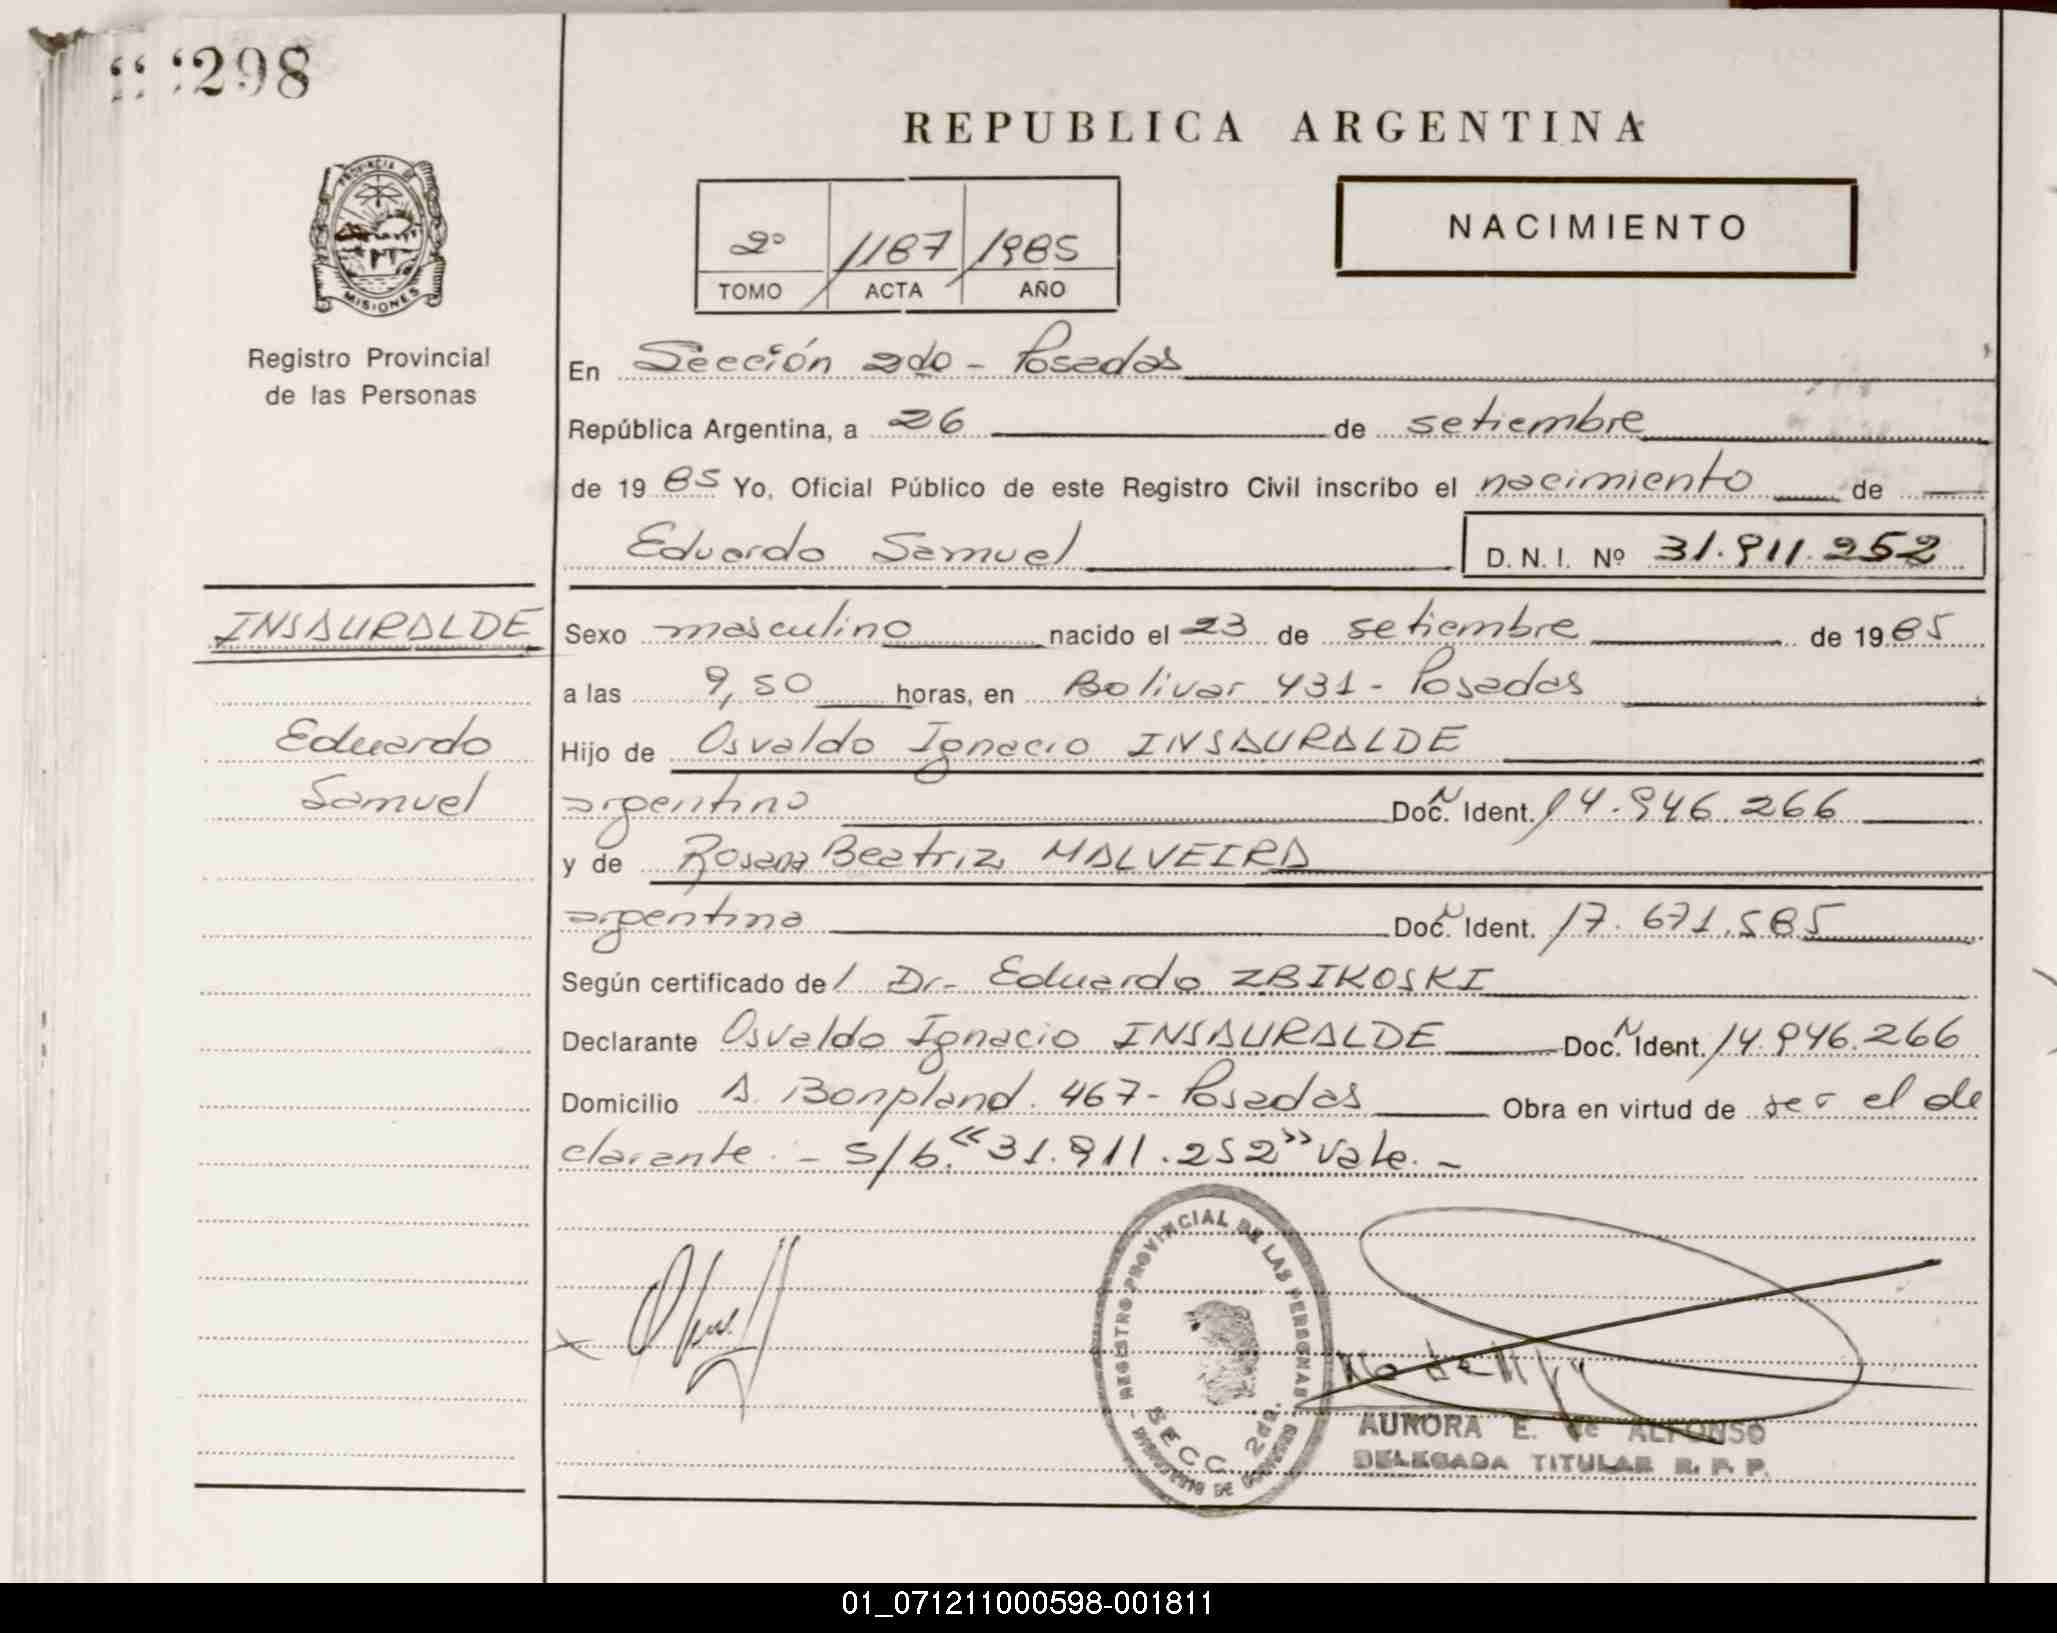 298
REPUBLICA ARGENTINA
PROVINCIA DE
MISIONES
NACIMIENTO
2º 1187 1985
TOMO ACTA AÑO
Registro Provincial
de las Personas
En Sección 2do - Posadas
República Argentina, a 26 de setiembre
de 1985 Yo, Oficial Público de este Registro Civil inscribo el nacimiento de
Eduardo Samuel D. N. I. Nº 31.911.252
INSAURALDE
Eduardo
Samuel
Sexo masculino nacido el 23 de setiembre de 1985
a las 9,50 horas, en Bolivar 431 - Posadas
Hijo de Osvaldo Ignacio INSAURALDE
argentino Doc. N Ident. 14.946.266
y de Rosana Beatriz MALVEIRA
argentina Doc. N Ident. 17.671.585
Según certificado del Dr. Eduardo ZBIKOSKI
Declarante Osvaldo Ignacio INSAURALDE Doc. N Ident. 14.946.266
Domicilio A. Bonpland. 467 - Posadas Obra en virtud de ser el de
clarante. - S/b. «31.911.252» Vale. -
REGISTRO PROVINCIAL DE LAS PERSONAS
SECC. 2da.
AURORA E. de ALFONSO
DELEGADA TITULAR R. P. P.
01_071211000598-001811